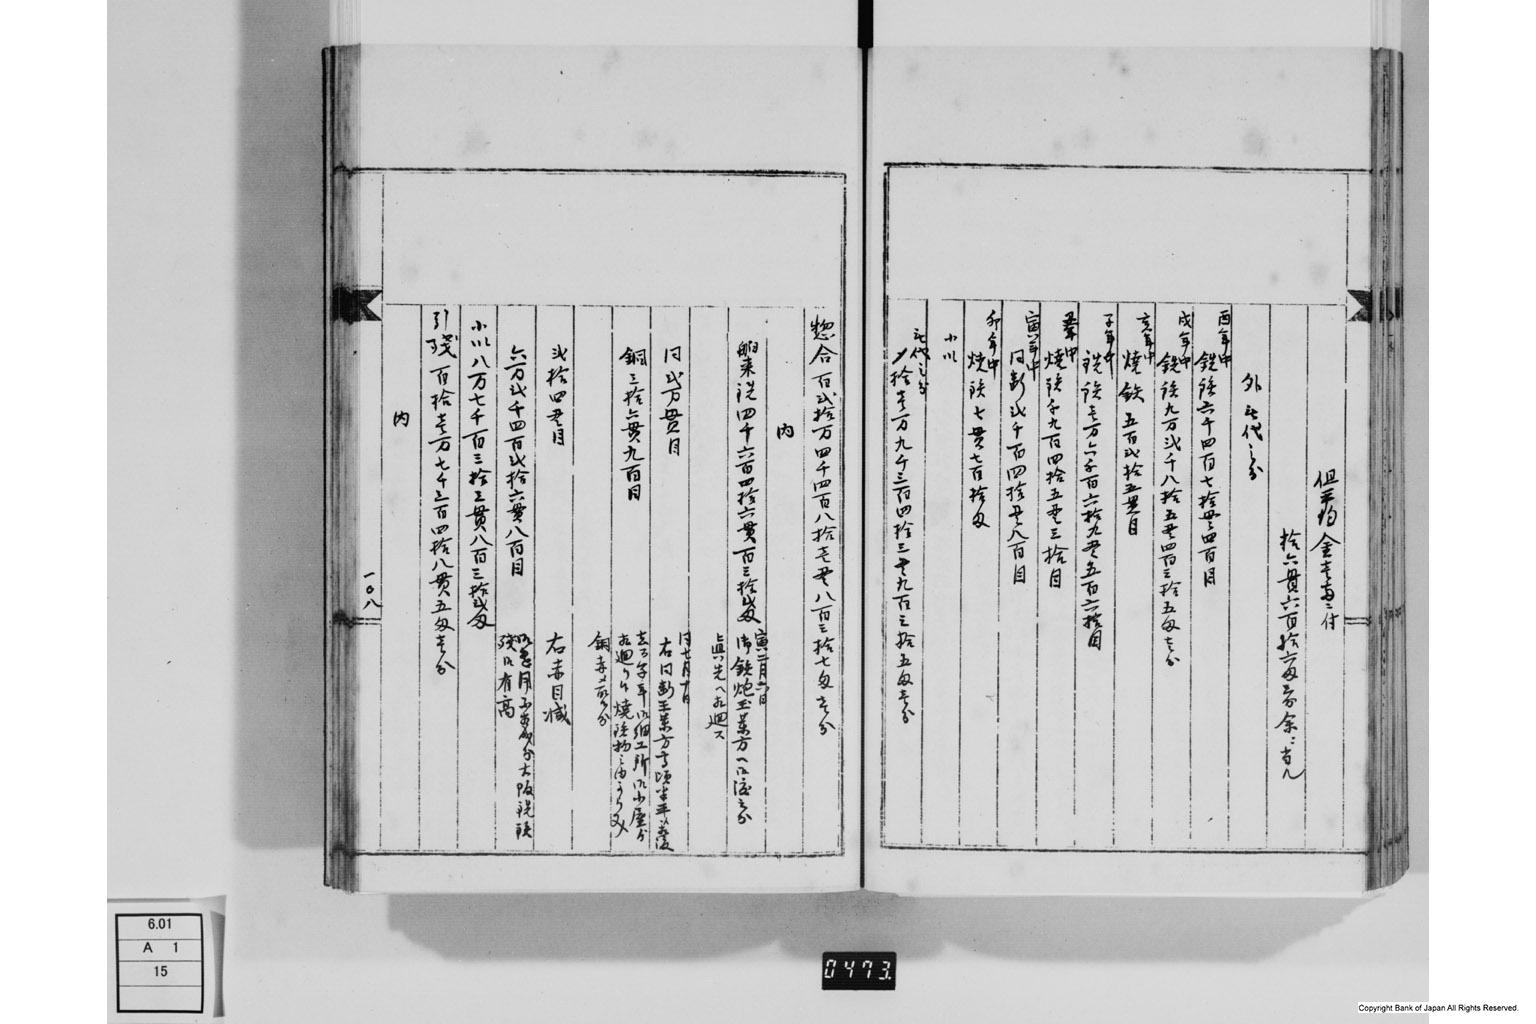 但平均金壱両ニ付
拾六貫六百拾
外無代之分
酉年中
銑鉄六千四百七拾貫四百目
戌年中
銑鉄九万弐千八拾五貫四百三拾五匁壱分
亥年中
焼鉄五百弐拾五貫目
子年中
銑鉄壱万六千百六拾九貫五百六拾目
丑年中
焼鉄千九百四拾五貫三拾目
寅年中
同断弐千百四拾貫八百目
卯年中
焼鉄七貫七百拾匁
小以
無代之分
拾壱万九千三百四拾三貫九百三拾五匁壱分
惣合百弐拾万四千四百八拾壱貫八百三拾七匁壱分
内
舶来銑四千六百四拾六貫百三拾弐匁
寅二月六日
御鉄炮玉薬方へ御渡之分
真先へ相廻ス
同弐万貫目
同七月十日
右同断玉薬方
銅三拾六貫九百目
御細工所御小屋分
相廻り候焼鉄物之内より
銅
弐拾四貫目
右赤目減
六万弐千四百弐拾六貫八百目
大阪銑鉄
残り有高
小以八万七千百三拾三貫八百三拾弐匁
引残百拾壱万七千三百四拾八貫五匁壱分
内
一〇八
6.01
A 1
15
0473.
Copyright Bank of Japan All Rights Reserved.